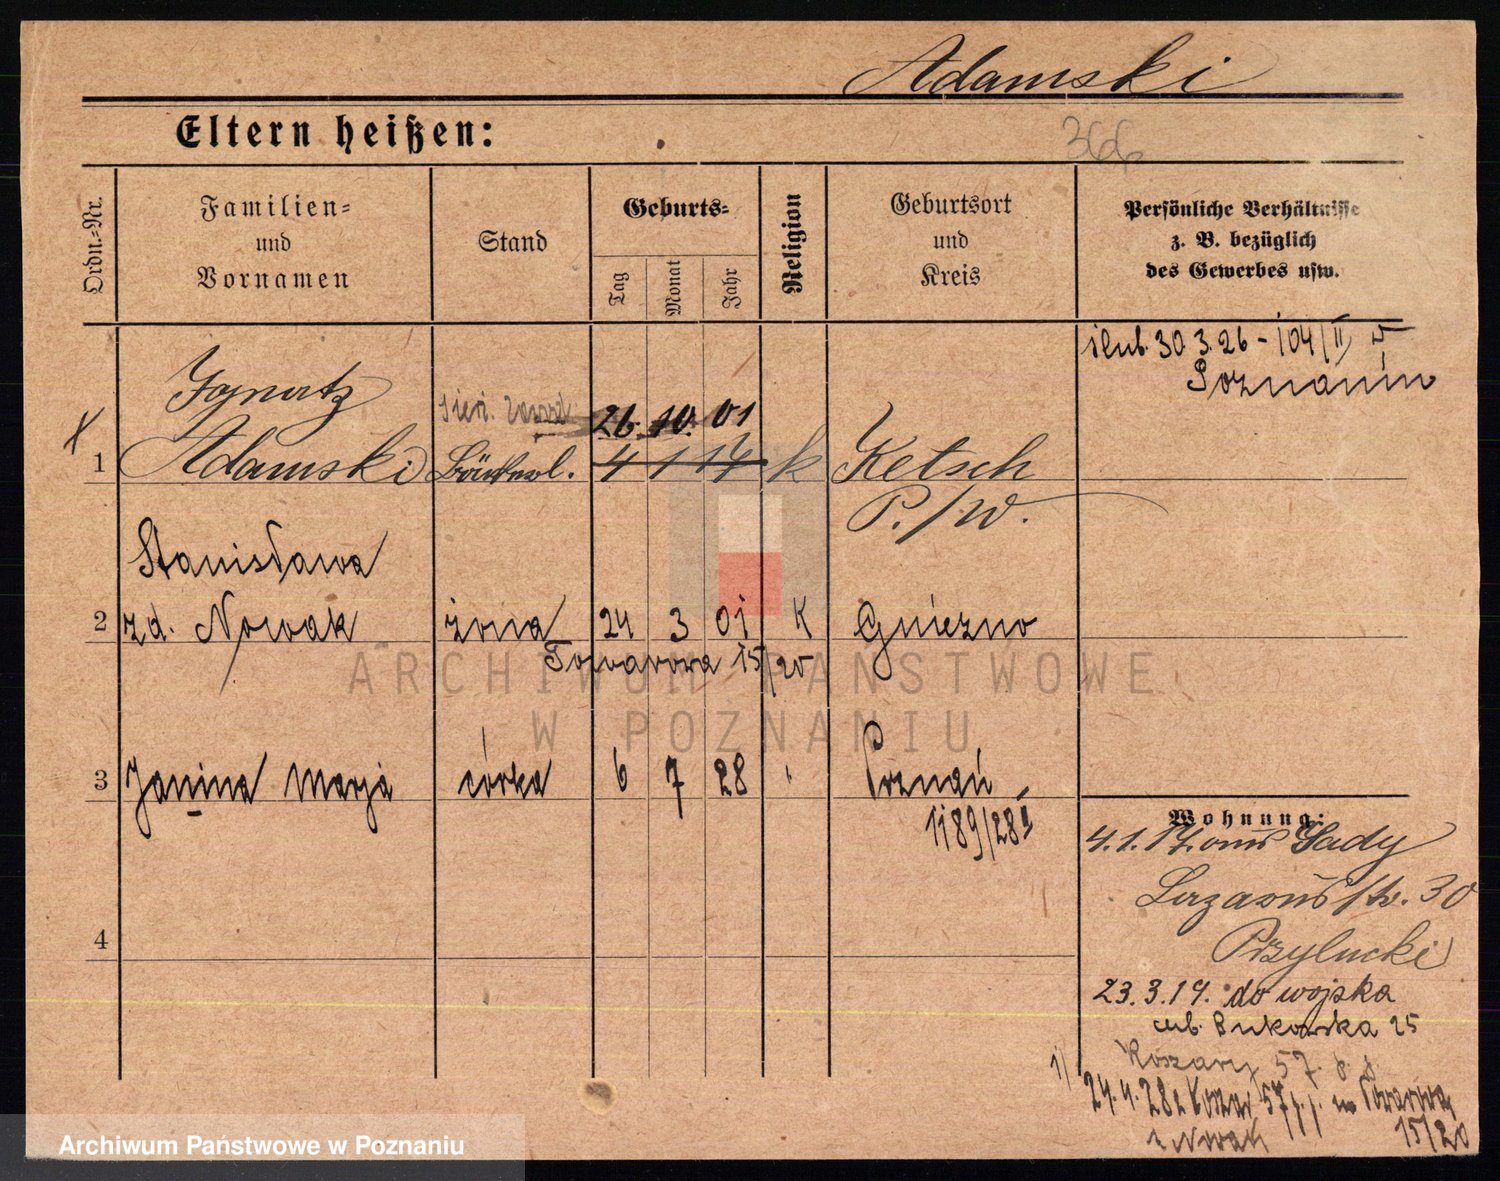 Adamski
Eltern heißen:
366
Ordn.-Nr.
Familien=
und
Vornamen
Stand
Geburts=
Tag
Monat
Jahr
Religion
Geburtsort
und
Kreis
Persönliche Verhältnisse
z. B. bezüglich
des Gewerbes usw.
ślub. 30 3. 26 - 104/II w
Poznaniu
Ignatz
26. 10. 01
1 Adamski 4 1 17 k Ketsch
P./W.
Stanisława
2 zd. Nowak żona 24 3 01 K Gniezno
Towarowa 15/20
ARCHIWUM PAŃSTWOWE
W POZNANIU
3 Janina Marja córka 6 7 28 " Poznań
1189/28 II
Wohnung:
4. 1. 17. aus Sady
Lazarusstr. 30
Przylucki
4
23. 3. 19. do wojska
ub. Bukowska 25
Koszary 57. p. p.
1)
24. 4. 28 z Koszar 57 p. p. na Towarowa
z Nowak 15/20
Archiwum Państwowe w Poznaniu